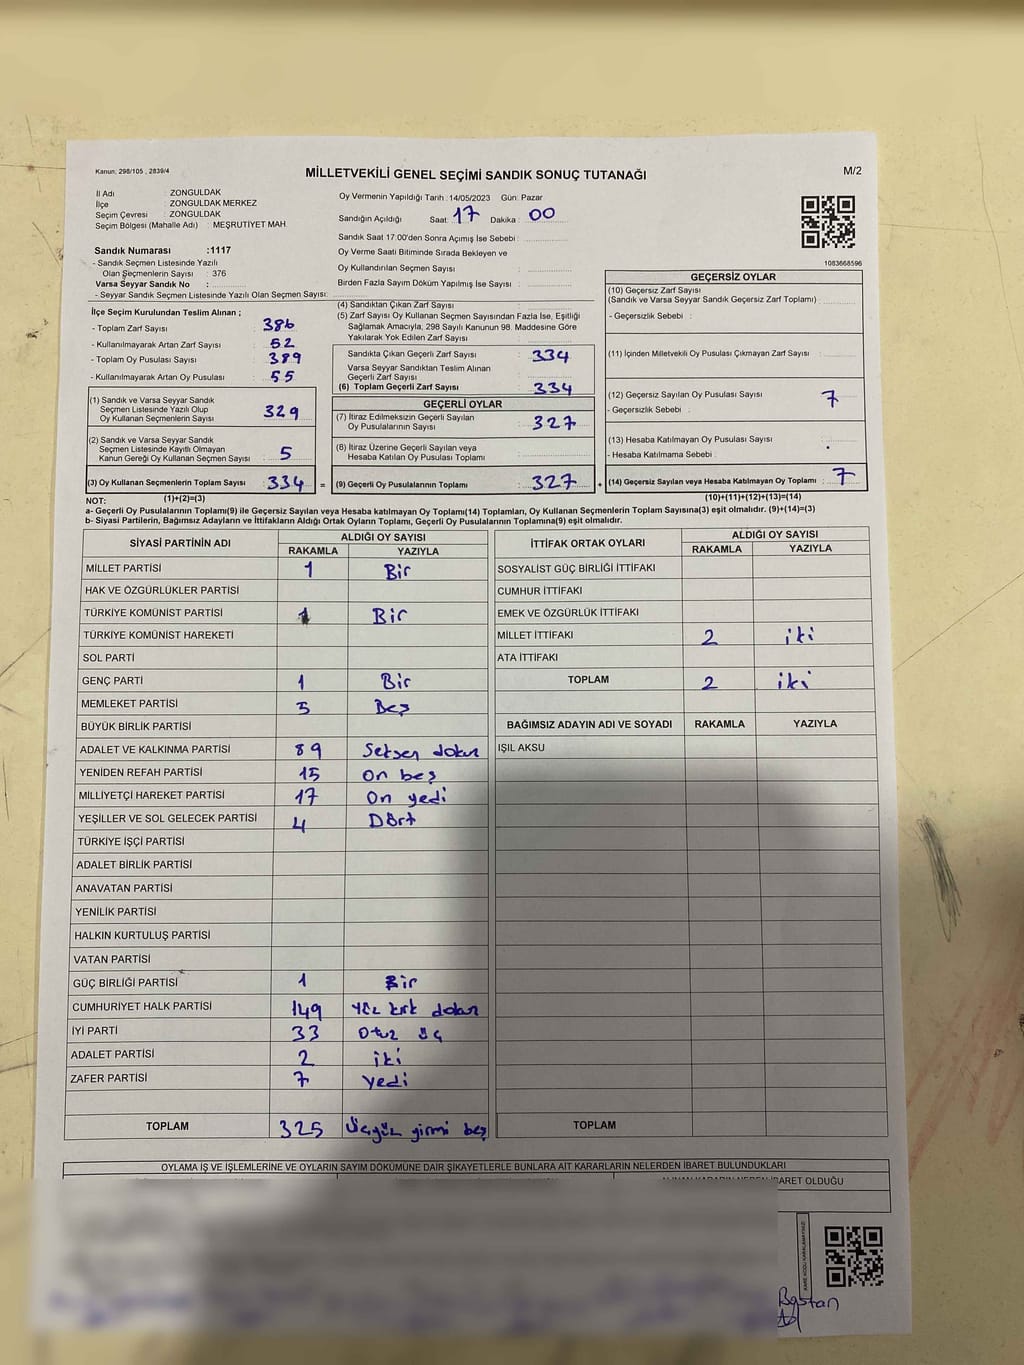 Kanun, 298/105 , 2839/4
MİLLETVEKİLİ GENEL SEÇİMİ SANDIK SONUÇ TUTANAĞI
M/2
İl Adı : ZONGULDAK
İlçe : ZONGULDAK MERKEZ
Seçim Çevresi : ZONGULDAK
Seçim Bölgesi (Mahalle Adı) : MEŞRUTİYET MAH
Sandık Numarası :1117
- Sandık Seçmen Listesinde Yazılı
Olan Seçmenlerin Sayısı : 376
Varsa Seyyar Sandık No :
- Seyyar Sandık Seçmen Listesinde Yazılı Olan Seçmen Sayısı:
Oy Vermenin Yapıldığı Tarih :14/05/2023 Gün: Pazar
Sandığın Açıldığı Saat: 17 Dakika : 00
Sandık Saat 17.00'den Sonra Açımış İse Sebebi :
Oy Verme Saati Bitiminde Sırada Bekleyen ve
Oy Kullandırılan Seçmen Sayısı :
Birden Fazla Sayım Dökümü Yapılmış İse Sayısı :
1083668596
İlçe Seçim Kurulundan Teslim Alınan ;
- Toplam Zarf Sayısı : 386
- Kullanılmayarak Artan Zarf Sayısı : 52
- Toplam Oy Pusulası Sayısı : 389
- Kullanılmayarak Artan Oy Pusulası : 55
(1) Sandık ve Varsa Seyyar Sandık
Seçmen Listesinde Yazılı Olup
Oy Kullanan Seçmenlerin Sayısı : 329
(2) Sandık ve Varsa Seyyar Sandık
Seçmen Listesinde Kayıtlı Olmayan
Kanun Gereği Oy Kullanan Seçmen Sayısı : 5
(3) Oy Kullanan Seçmenlerin Toplam Sayısı : 334 =
(4) Sandıktan Çıkan Zarf Sayısı :
(5) Zarf Sayısı Oy Kullanan Seçmen Sayısından Fazla İse, Eşitliği
Sağlamak Amacıyla, 298 Sayılı Kanunun 98. Maddesine Göre
Yakılarak Yok Edilen Zarf Sayısı :
Sandıkta Çıkan Geçerli Zarf Sayısı : 334
Varsa Seyyar Sandıktan Teslim Alınan
Geçerli Zarf Sayısı :
(6) Toplam Geçerli Zarf Sayısı : 334
GEÇERLİ OYLAR
(7) İtiraz Edilmeksizin Geçerli Sayılan
Oy Pusulalarının Sayısı : 327
(8) İtiraz Üzerine Geçerli Sayılan veya
Hesaba Katılan Oy Pusulası Toplamı :
(9) Geçerli Oy Pusulalarının Toplamı : 327 +
GEÇERSİZ OYLAR
(10) Geçersiz Zarf Sayısı
(Sandık ve Varsa Seyyar Sandık Geçersiz Zarf Toplamı) :
- Geçersizlik Sebebi :
(11) İçinden Milletvekili Oy Pusulası Çıkmayan Zarf Sayısı :
(12) Geçersiz Sayılan Oy Pusulası Sayısı : 7
- Geçersizlik Sebebi :
(13) Hesaba Katılmayan Oy Pusulası Sayısı :
- Hesaba Katılmama Sebebi :
(14) Geçersiz Sayılan veya Hesaba Katılmayan Oy Toplamı : 7
NOT: (1)+(2)=(3) (10)+(11)+(12)+(13)=(14)
a- Geçerli Oy Pusulalarının Toplamı(9) ile Geçersiz Sayılan veya Hesaba katılmayan Oy Toplamı(14) Toplamları, Oy Kullanan Seçmenlerin Toplam Sayısına(3) eşit olmalıdır. (9)+(14)=(3)
b- Siyasi Partilerin, Bağımsız Adayların ve İttifakların Aldığı Ortak Oyların Toplamı, Geçerli Oy Pusulalarının Toplamına(9) eşit olmalıdır.
SİYASİ PARTİNİN ADI ALDIĞI OY SAYISI
RAKAMLA YAZIYLA
MİLLET PARTİSİ 1 Bir
HAK VE ÖZGÜRLÜKLER PARTİSİ
TÜRKİYE KOMÜNİST PARTİSİ 1 Bir
TÜRKİYE KOMÜNİST HAREKETİ
SOL PARTİ
GENÇ PARTİ 1 Bir
MEMLEKET PARTİSİ 5 Beş
BÜYÜK BİRLİK PARTİSİ
ADALET VE KALKINMA PARTİSİ 89 Seksen dokuz
YENİDEN REFAH PARTİSİ 15 On beş
MİLLİYETÇİ HAREKET PARTİSİ 17 On yedi
YEŞİLLER VE SOL GELECEK PARTİSİ 4 Dört
TÜRKİYE İŞÇİ PARTİSİ
ADALET BİRLİK PARTİSİ
ANAVATAN PARTİSİ
YENİLİK PARTİSİ
HALKIN KURTULUŞ PARTİSİ
VATAN PARTİSİ
GÜÇ BİRLİĞİ PARTİSİ 1 Bir
CUMHURİYET HALK PARTİSİ 149 Yüz kırk dokuz
İYİ PARTİ 33 Otuz üç
ADALET PARTİSİ 2 iki
ZAFER PARTİSİ 7 yedi
TOPLAM 325 Üçyüz yirmi beş
İTTİFAK ORTAK OYLARI ALDIĞI OY SAYISI
RAKAMLA YAZIYLA
SOSYALİST GÜÇ BİRLİĞİ İTTİFAKI
CUMHUR İTTİFAKI
EMEK VE ÖZGÜRLÜK İTTİFAKI
MİLLET İTTİFAKI 2 iki
ATA İTTİFAKI
TOPLAM 2 iki
BAĞIMSIZ ADAYIN ADI VE SOYADI RAKAMLA YAZIYLA
IŞIL AKSU
TOPLAM
OYLAMA İŞ VE İŞLEMLERİNE VE OYLARIN SAYIM DÖKÜMÜNE DAİR ŞİKAYETLERLE BUNLARA AİT KARARLARIN NELERDEN İBARET BULUNDUKLARI
İBARET OLDUĞU
Bostan